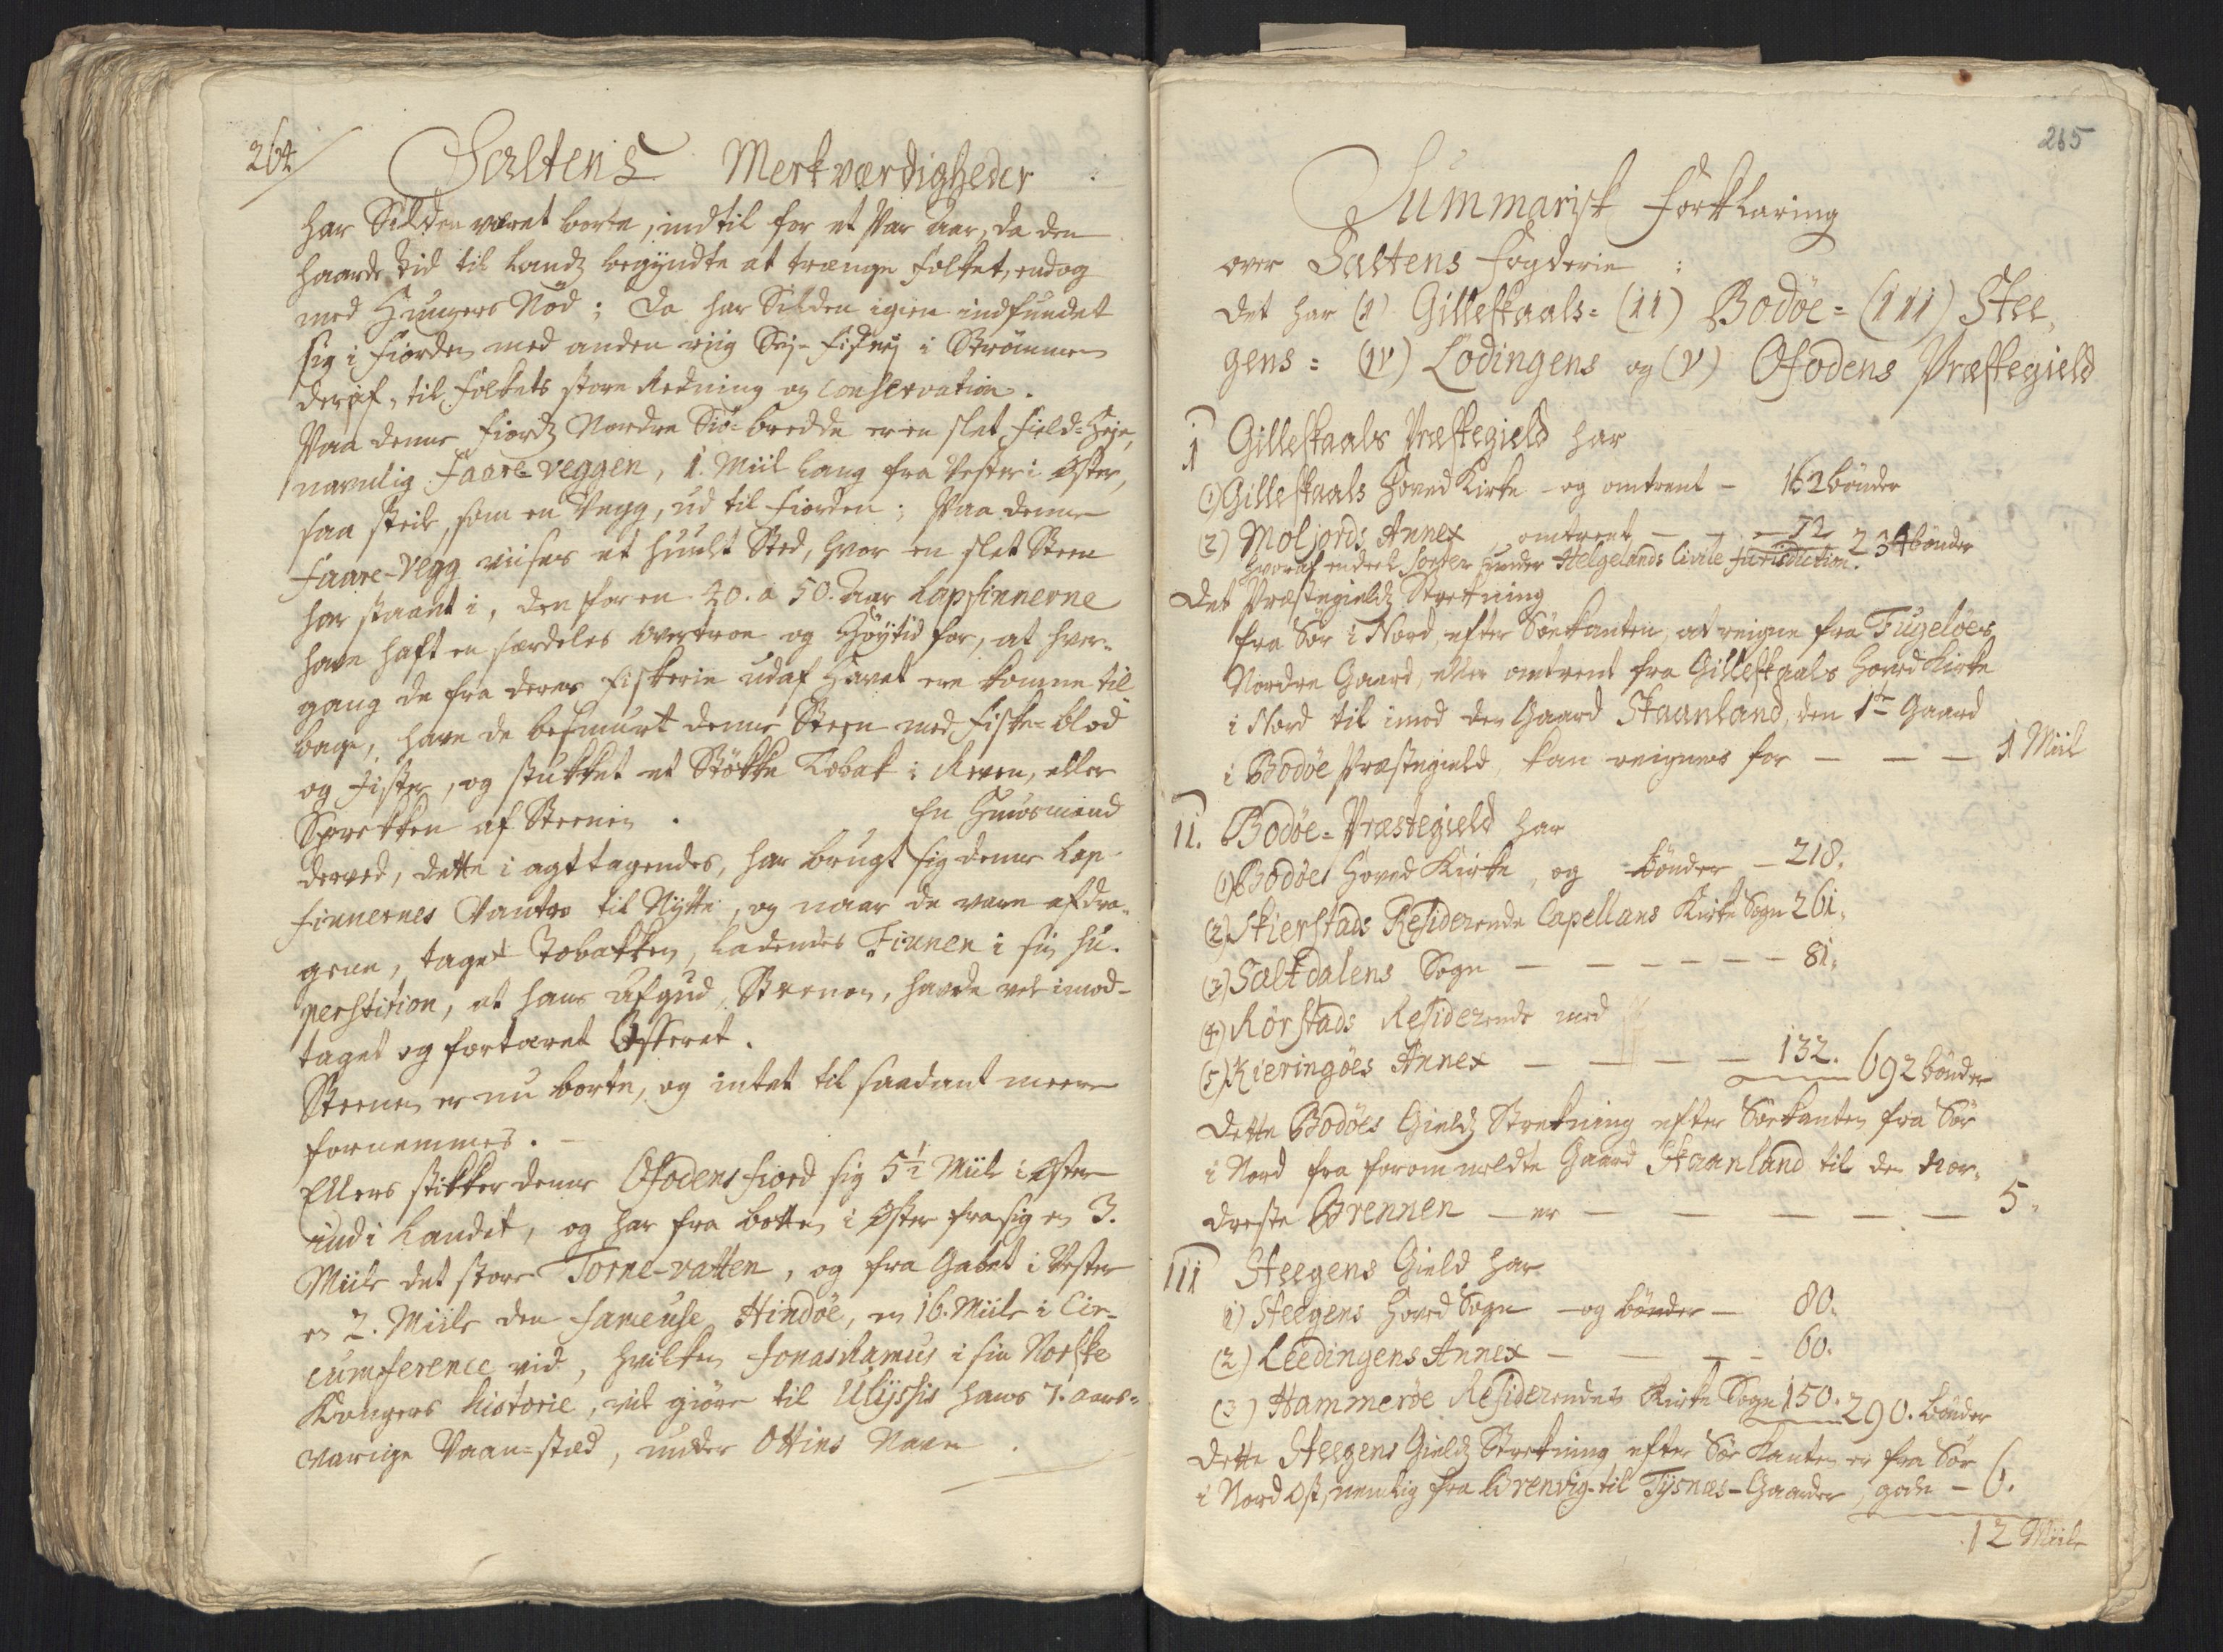 264
Saltens Merkværdigheder
har Silden været borte, indtil for et Par Aar, da den
haarde Tid til Landz begyndte at trænge folket, endog
med Hungers Nød; da har Silden igien indfundet
sig i Fiorden med anden riig Sej-Fisk i Strømmen
deraf, til folkets store Redning og Conservation.
Paa denne Fiordz Nordre Siø-bredde er en slet Field-Høje,
navnlig Faare-veggen, 1. Miil lang fra Vester i Øster,
saa steil, som en Vegg, ud til Fiorden; Paa denne
Faare-Vegg viises et huult Sted, hvor en slet Steen
har staaet i, den for en 40. a 50. Aar Lapfinnerne
have haft en særdeles Overtroe og Høytid for, at hver-
gang de fra deres Fiskerie udaf Havet ere komne til
bage, have de besmurt denne Steen med Fiske-blod
og Fister, og stukket et Støkke Tobak i Reven, eller
Sprekken af Steenen. En Huusmand
derved, dette i agttagendes, har brugt sig denne Lap-
finnernes Vantro til Nytte, og naar de vare afdra-
gene, taget Tobakken, ladendes Finnen i sin Su-
perstition, at hans Afgud, Steenen, havde vel imod-
taget og fortæret Offeret.
Steenen er nu borte, og intet til saadant meere
fornemmes. -
Ellers stikker denne Ofodens fiord sig 5½ Miil i Øster
ind i Landet, og har fra botten i Øster fra sig en 3.
Miile det store Torne-vatten, og fra Gabet i Vester
en 2. Miile den fameuse Hindøe, en 16. Miile i Cir-
cumference vid, hvilken Jonas Ramus i sin Norske
Kongers historie, vil giøre til Ulyssis hans 7. aars-
varige Vaan-stæd, under Ottins Navn.
265
Summarisk Forklaring
over Saltens Fogderie:
Det har (1) Gilleskaals= (11) Bodøe= (111) Stee,
gens= (1V) Lodingens og (V) Ofodens Præstegield
1 Gilleskaals Præstegield har
(1) Gilleskaals Hoved Kirke - og omtrent - 162 bönder
(2) Moljords Annex, omtrent - - - 72 234 bönder
hvoraf endeel sorter under Helgelands Civile Jurisdiction.
Det Præstegieldz Strekning
fra Sør i Nord, efter Søekanten, at reigne fra Fugeløes
Nordre Gaard, eller omtrent fra Gilleskaals Hoved Kirke
i Nord til imod den Gaard Skaanland, den 1te Gaard
i Bodøe Præstegield, kan reignes for - - - 1 Miil
11. Bodøe=Præstegield har
(1) Bodøes Hoved Kirke, og bönder - 218.
(2) Skierstads Residerende Capellans Kirke Sogn 261.
(3) Saltdalens Sogn - - - - - - 81.
(4) Rörstads Residerende med
(5) Kieringøes Annex - - - - 132. 692 bönder
Dette Bodøes Gieldz Strekning efter Søekanten fra Sør
i Nord fra forommeldte Gaard Skaanland til den Nor-
dreste Brennen - er - - - - - 5.
111 Steegens Gield har
1) Steegens Hoved Sogn - og bönder - 80.
(2) Leedingens Annex - - - 60.
(3) Hammerøe Residerendes Kirke Sogn 150. 290. bönder
Dette Steegens Gieldz Strekning efter Søe Kanten er fra Sør
i Nord Ost, nemlig fra Brenvig til Tysnæs-Gaarder, gode - 6.
12 Miile